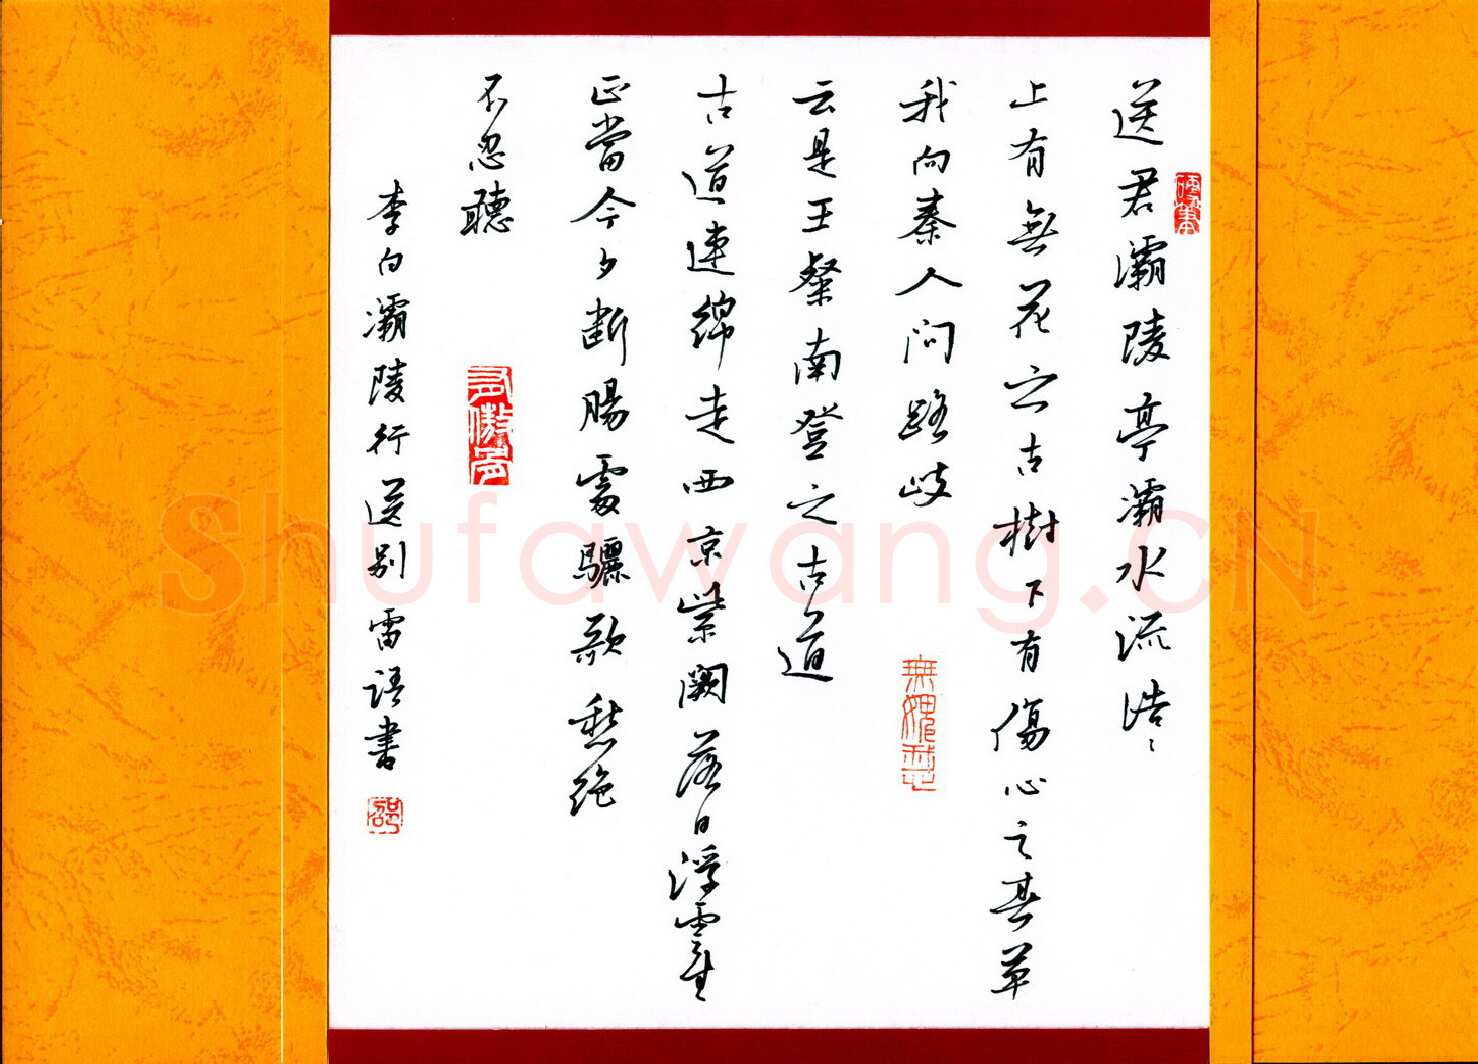 送君灞陵亭灞水流浩〻
上有無花之古樹下有傷心之春草
我向秦人問路岐
云是王粲南登之古道
古道連綿走西京紫闕落日浮雲生
正當今夕斷腸處驪歌愁絕
不忍聽
李白灞陵行送別 雷語書
硬筆
Shufawang.CN